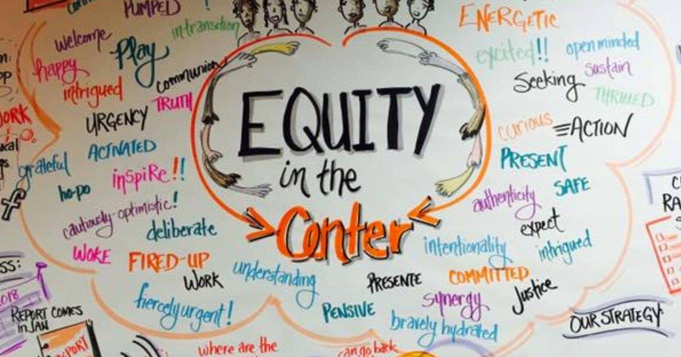 PUMPED!
in transition
ENERGETIC
welcome
Play
happy
communion
intrigued
TRUTH
URGENCY
ACTIVATED
grateful
inspire!!
ho-po
cautiously-optimistic!
deliberate
WOKE
FIRED-UP
WORK
understanding
fiercely urgent!
EQUITY
in the
Center
excited!!
open minded
sustain
Seeking
THRILLED
curious
ACTION
PRESENT
SAFE
authenticity
expect
intentionality
intrigued
PRESENTE
COMMITTED
synergy
Justice
PENSIVE
bravely hydrated
OUR STRATEGY
2018
REPORT COMES
IN JAN
REPORT
where are the
can go back